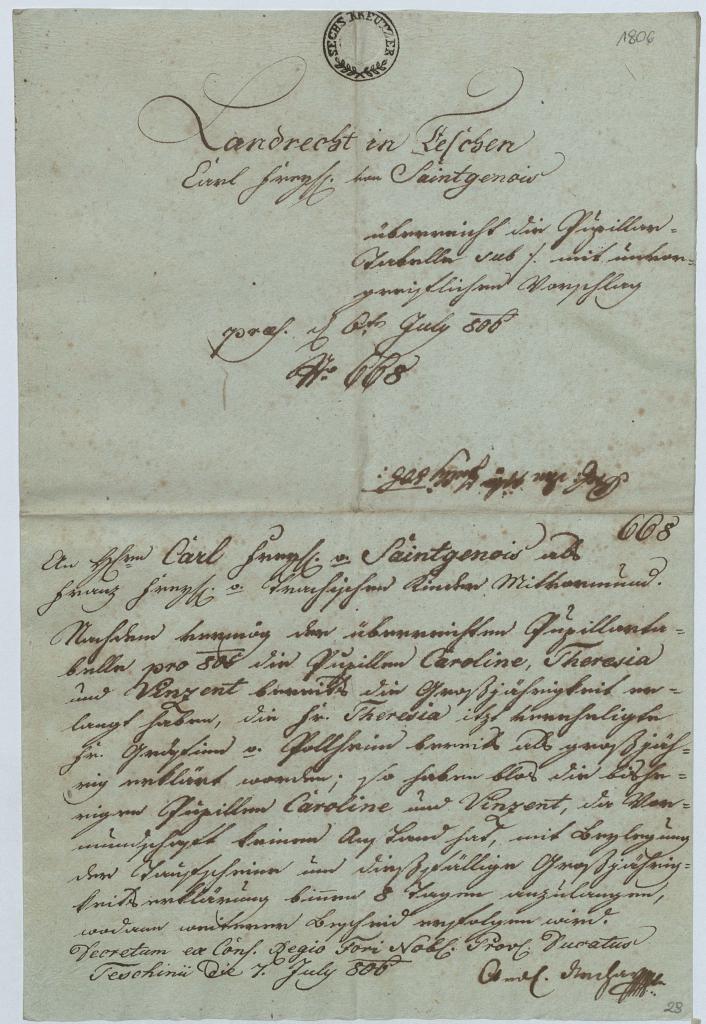 SECHS KREUTZER
1806
Landrecht in Teschen
Carl Freyh. von Saintgenois
überreicht die Pupillar-
Tabelle sub /. mit unvor-
greiflichen Vorschlag
præs. d 6t July 806
No 668
July 806
668
An Hhrn Carl Freyh. v. Saintgenois als
Franz Freyh. v. Trachischen Kinder Mitvormund.
Nachdem vermög der überreichten Pupillarta-
belle pro 806 die Pupillen Caroline, Theresia
und Vinzent bereits die Großjährigkeit er-
langt haben, die Fr. Theresia itzt vereheligte
Fr. Gräfinn v. Pollheim bereits als großjäh-
rig erklärt worden; so haben blos die bishe-
rigen Pupillen Caroline und Vinzent, da Vor-
mundschaft keinen Anstand hat, mit Beylegung
der Taufscheine um dießfällige Großjährig-
keitserklärung binnen 8 Tagen anzulangen,
wodann weiterer Bescheid erfolgen wird.
Decretum ex Cons. Regio Fori Nobl. Provl. Ducatus
Teschinii Die 7. July 806
23